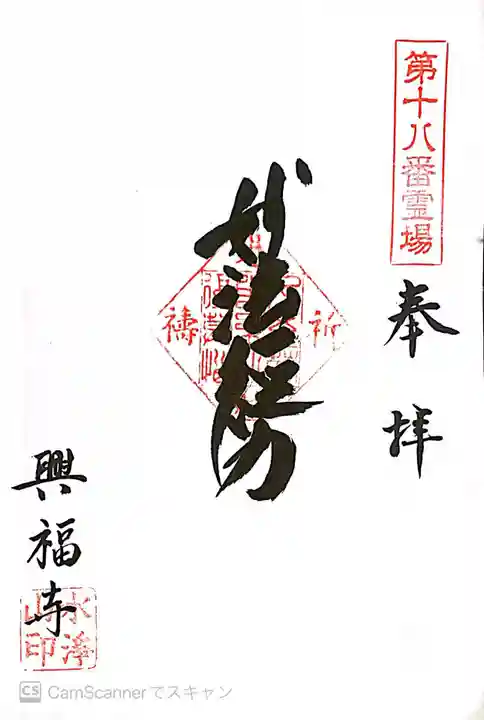 第十八番霊場
奉拝
妙法
祈
祷
興福寺
水浄
山印
CS CamScannerでスキャン